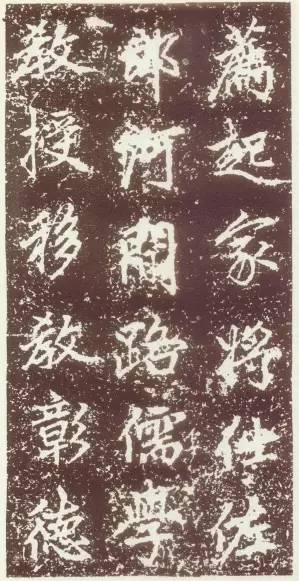 薦起家将仕佐
郎河間路儒學
教授移教彰德